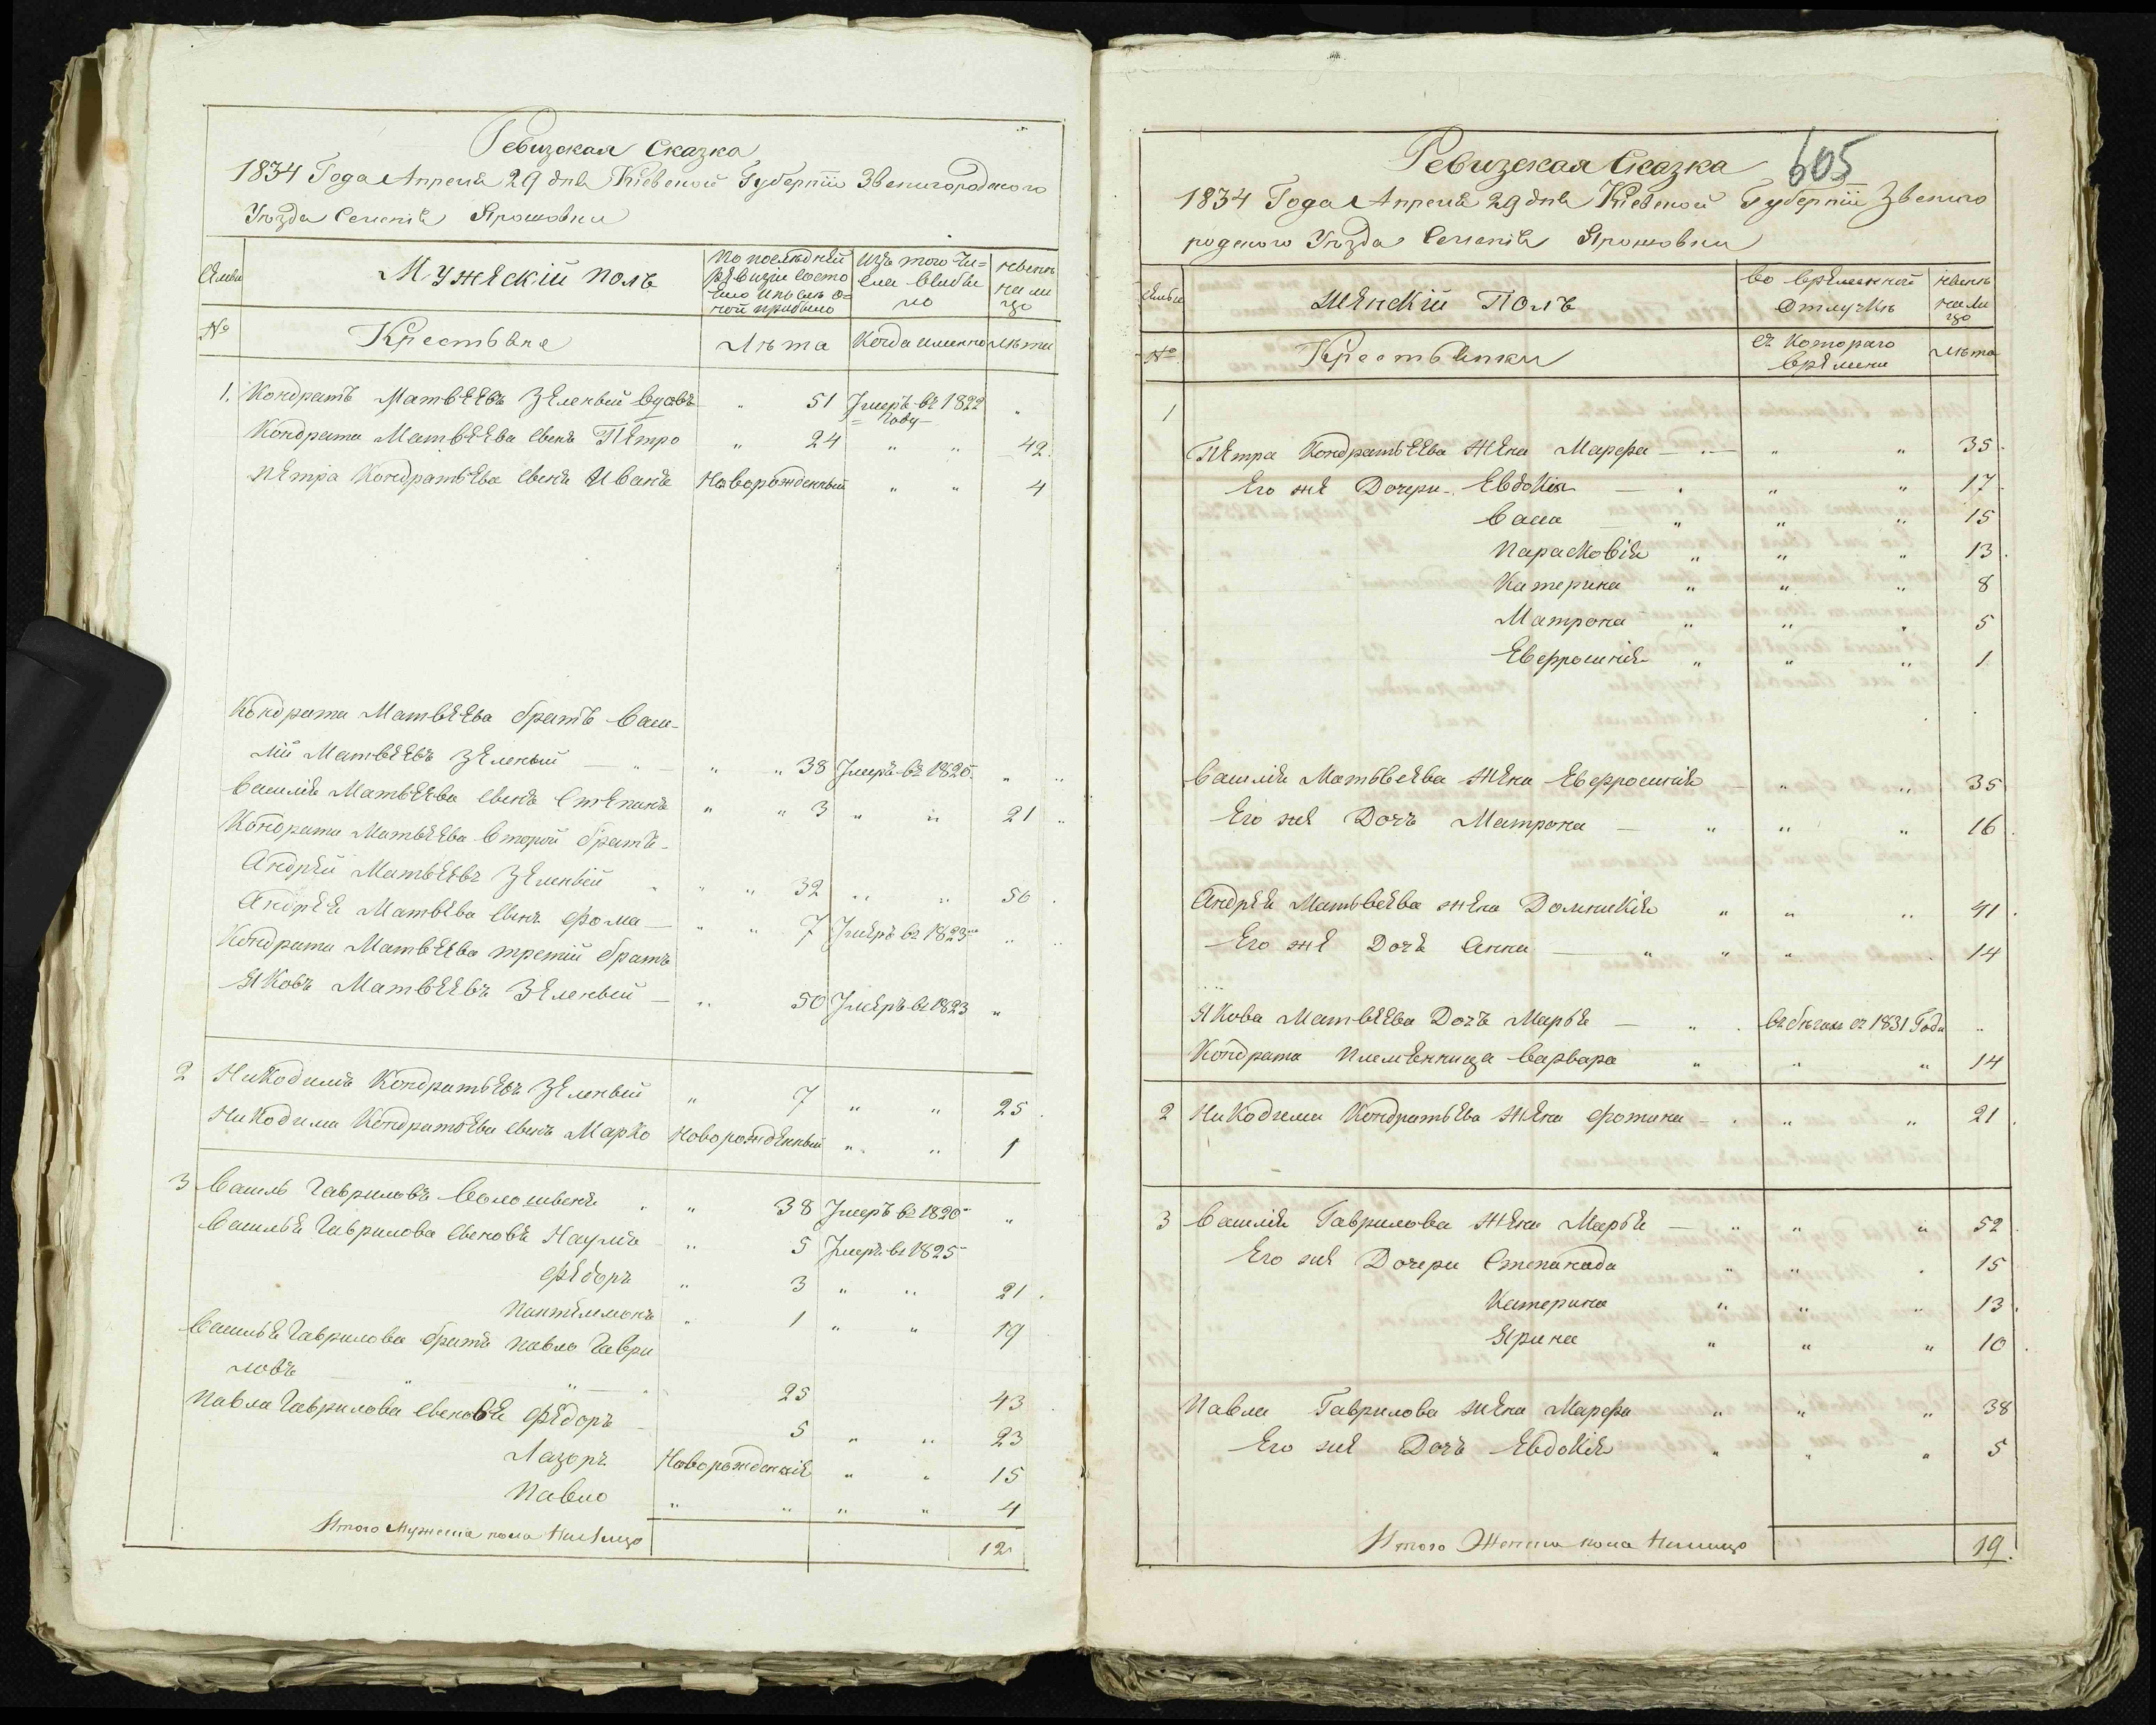 Ревизская Сказка
1834 Года Апреля 29 дня Кіевской Губерніи Звенигородского
Уѣзда Селенія Ярошовки
Семьи
Мужескій полъ
По послѣдней
ревизіи состо
яло и послѣ о=
ной прибыло
Изъ того чи=
сла выбы
ло
нынѣ
на ли
цо
№
Крестьяне
Лѣта
Когда именно
Лѣта
1. Кондратъ Матвѣевъ Зеленый вдовъ " 51 Умеръ въ 1822 "
Году
Кондрата Матвѣева сынъ Петро " 24 " " 42.
Петра Кондратьева сынъ Иванъ Новорожденный " " 4
Кондрата Матвѣева братъ Васи-
лій Матвѣевъ Зеленый " " 38 Умеръ въ 1825. " "
Василія Матвѣева сынъ Степанъ " " 3 " " 21 "
Кондрата Матвѣева второй братъ-
Андрей Матвѣевъ Зеленый " " " 32 " " 50.
Андрея Матвева сынъ Фома — " " 7 Умеръ въ 1823 " "
Кондрата Матвѣева третій братъ
Яковъ Матвѣевъ Зеленый — " 50 Умеръ въ 1823 "
2 Никодимъ Кондратьевъ Зеленый " 7 " " 25.
Никодима Кондратьева сынъ Марко Новорожденный " " 1
3 Василь Гавриловъ Волошынъ " " 38 Умеръ въ 1820 "
Василья Гаврилова сыновья Наумъ " 5 Умеръ въ 1825
Федоръ " 3 " " 21.
Пантелимонъ " 1 " " 19
Василья Гаврилова братъ Павло Гаври
ловъ " " 25 43.
Павла Гаврилова сыновья Федоръ 5 " " 23
Лазоръ Новорожденнія " " 15
Павло " " " " 4
Итого Мужеска пола на лицо 12
605
Ревизская Сказка
1834 Года Апреля 29 дня Кіевской Губерніи Звениго
родского Уѣзда Селенія Ярошовки
Семьи
Женскій Полъ
Во временной
Отлучкѣ
нынѣ
на ли
цо
№
Крестьянки
Съ Котораго
времени
Лѣта
1
Петра Кондратьева жена Марфа — " " 35.
Его же Дочери Евдокія — " " 17.
Васа — " " " 15
Парасковія " " " 13.
Катерина " " " 8
Матрона " " " 5
Евфросинія " " " 1
Василія Матьвеева жена Евфросинія — " " 35
Его же Дочъ Матрона — " " " 16.
Андрея Матьвеева жена Домникія " " " 41.
Его же Дочъ Анна — " " " 14
Якова Матвѣева Дочъ Марья — " въ бѣгахъ съ 1831 Года "
Кондрата племенница Варвара " " " 14
2 Никодима Кондратьева жена Фотина — " " 21.
3 Василія Гаврилова жена Марья — " " " 52.
Его же Дочери Степанида " " " 15
Катерина " " " 13.
Ярина " " " 10.
Павла Гаврилова жена Марфа " " " 38
Его же Дочъ Евдокія " " " 5
Итого Женска пола на лицо 19.